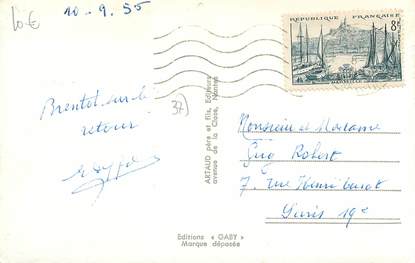 10-€
10-9.55
REPUBLIQUE FRANÇAISE
8F
MARSEILLE
Brentôt sur le
retour!
37
ARTAUD père et fils, Editeurs
avenue de la Close, Nantes
Monsieur et Madame
Guy Robert
7. rue Henri
Paris 19e
Editions « GABY »
Marque déposée